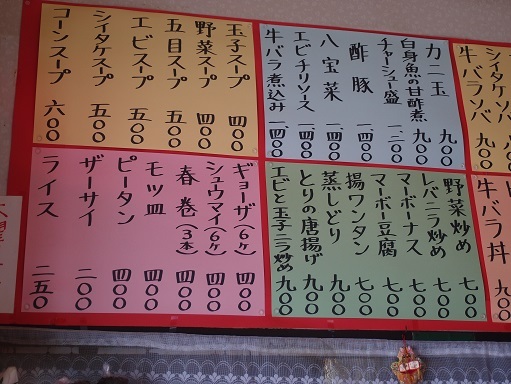 シイタケソバ
牛バラソバ 九〇〇
カニ玉 九〇〇
白身魚の甘酢煮 九〇〇
チャーシュー盛 一二〇〇
酢豚 一四〇〇
八宝菜 一四〇〇
エビチリソース 一四〇〇
牛バラ煮込み 一四〇〇
玉子スープ 四〇〇
野菜スープ 四〇〇
五目スープ 五〇〇
エビスープ 五〇〇
シイタケスープ 五〇〇
コーンスープ 六〇〇
牛バラ丼 九〇〇
野菜炒め 七〇〇
レバニラ炒め 七〇〇
マーボーナス 七〇〇
マーボー豆腐 七〇〇
揚ワンタン 七〇〇
蒸しどり 九〇〇
とりの唐揚げ 九〇〇
エビと玉子ニラ炒め 九〇〇
ギョーザ(6ヶ) 四〇〇
シュウマイ(6ヶ) 四〇〇
春巻(3本) 四〇〇
モツ皿 四〇〇
ピータン 四〇〇
ザーサイ 二〇〇
ライス 二五〇